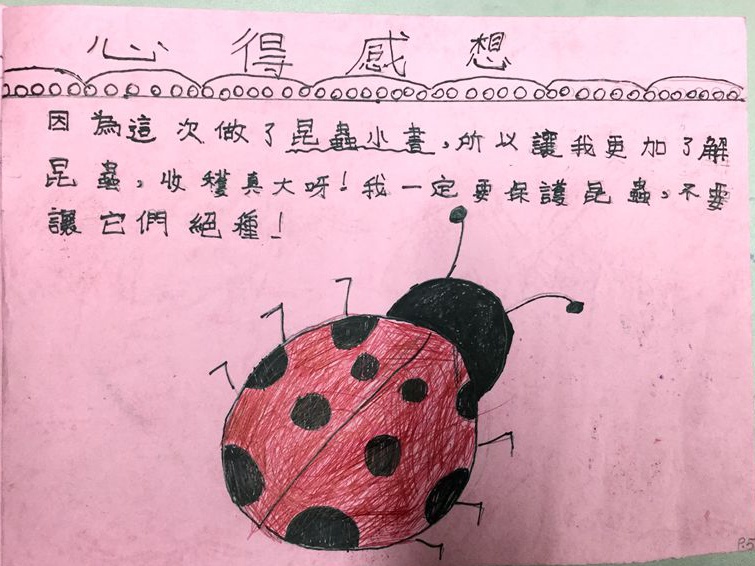 心得感想
因為這次做了昆蟲小書,所以讓我更加了解
昆蟲,收穫真大呀!我一定要保護昆蟲,不要
讓它們絕種!
P.5